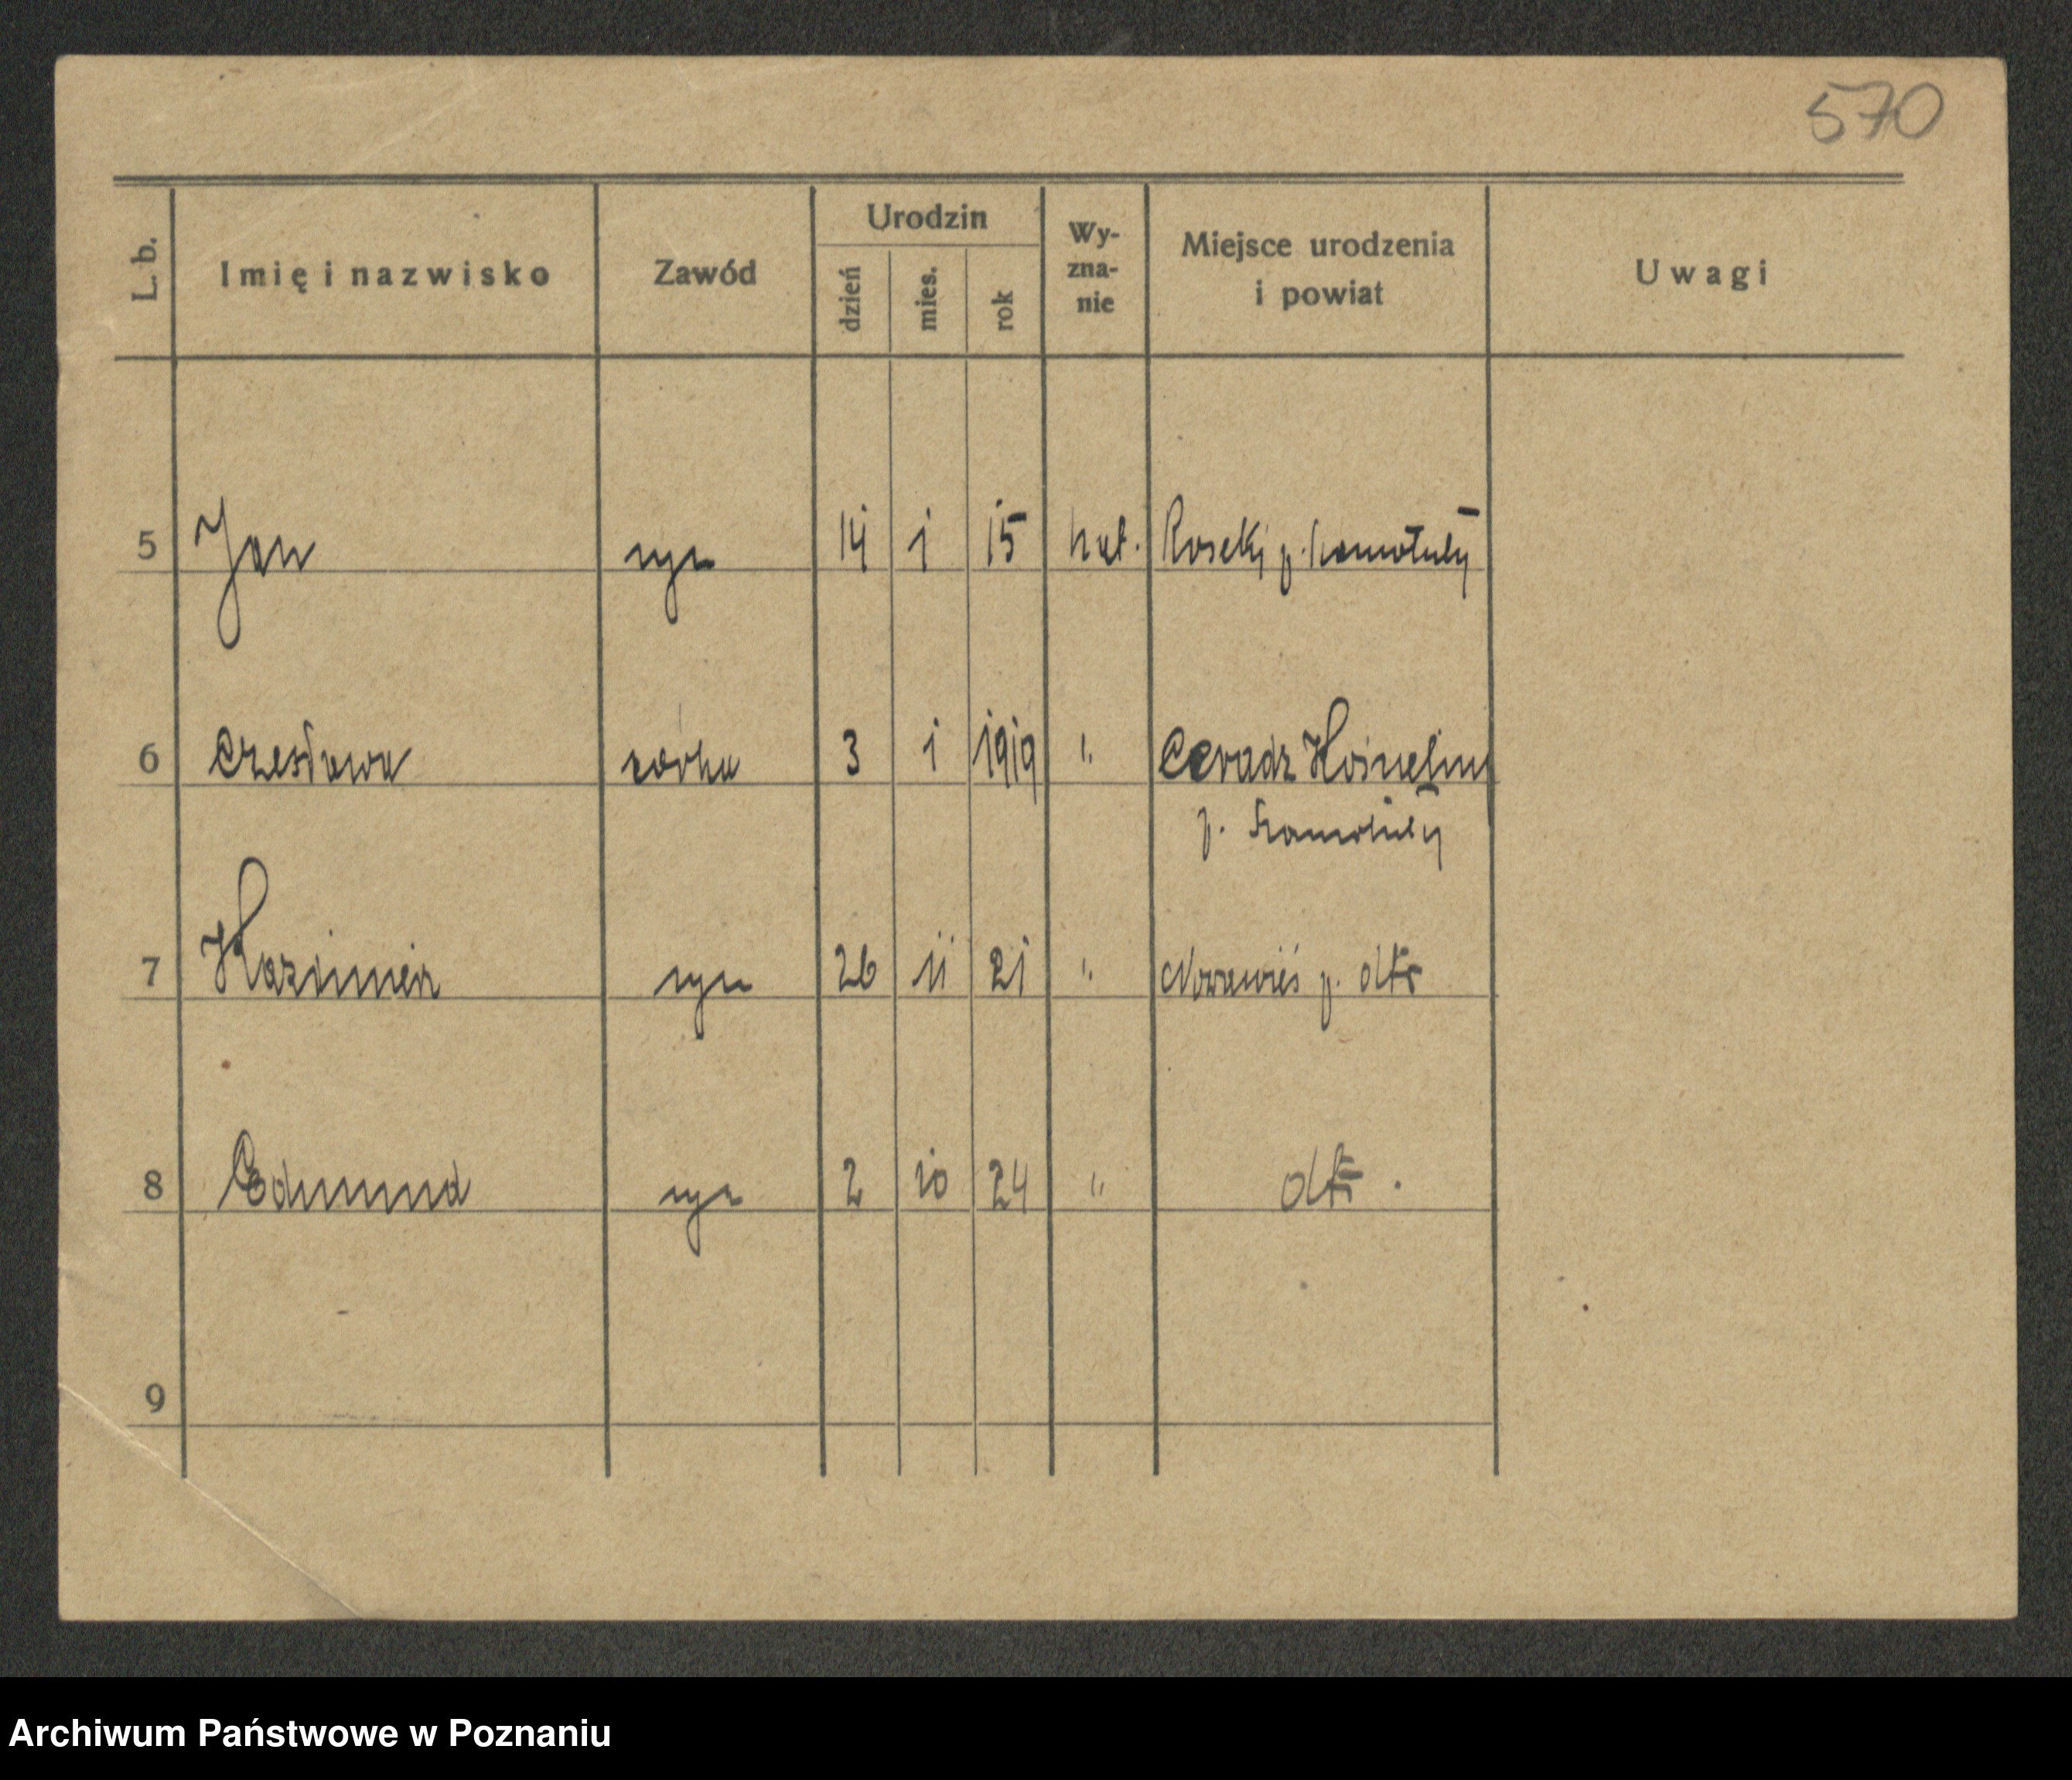 570
L. b.
Imię i nazwisko
Zawód
Urodzin
dzień
mies.
rok
Wy-
zna-
nie
Miejsce urodzenia
i powiat
Uwagi
5 Jan syn 14 1 15 kat. p. Szamotuły
6 Czesława córka 3 1 1919 " Ceradz
p. Szamotuły
7 Kazimierz syn 26 11 21 " Nowawieś p. dtto
8 Edmund syn 2 10 24 " dtto.
9
Archiwum Państwowe w Poznaniu